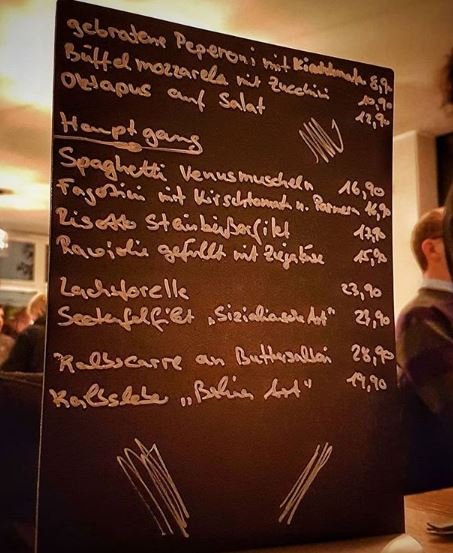 gebratene Peperoni mit Kirschtomaten 8,90
Büffelmozzarella mit Zucchini 10,90
Oktopus auf Salat 12,90
Hauptgang
Spaghetti Venusmuscheln 16,90
mit Kirschtomaten u. Parmesan 16,90
Risotto Steinbeißerfilet 17,90
Ravioli gefüllt mit Ziegenkäse 15,90
Lachsforelle 23,90
Seeteufelfilet „Sizilianische Art" 29,90
Kalbscarre an Buttersalbei 28,90
Kalbsleber „Berliner Art" 19,90